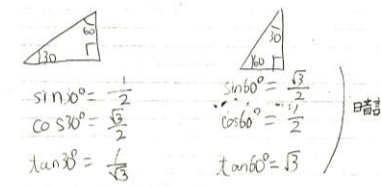 60
30
sin30°=1/2
cos30°=√3/2
tan30°=1/√3
30
60
sin60°=√3/2
cos60°=1/2
tan60°=√3
暗